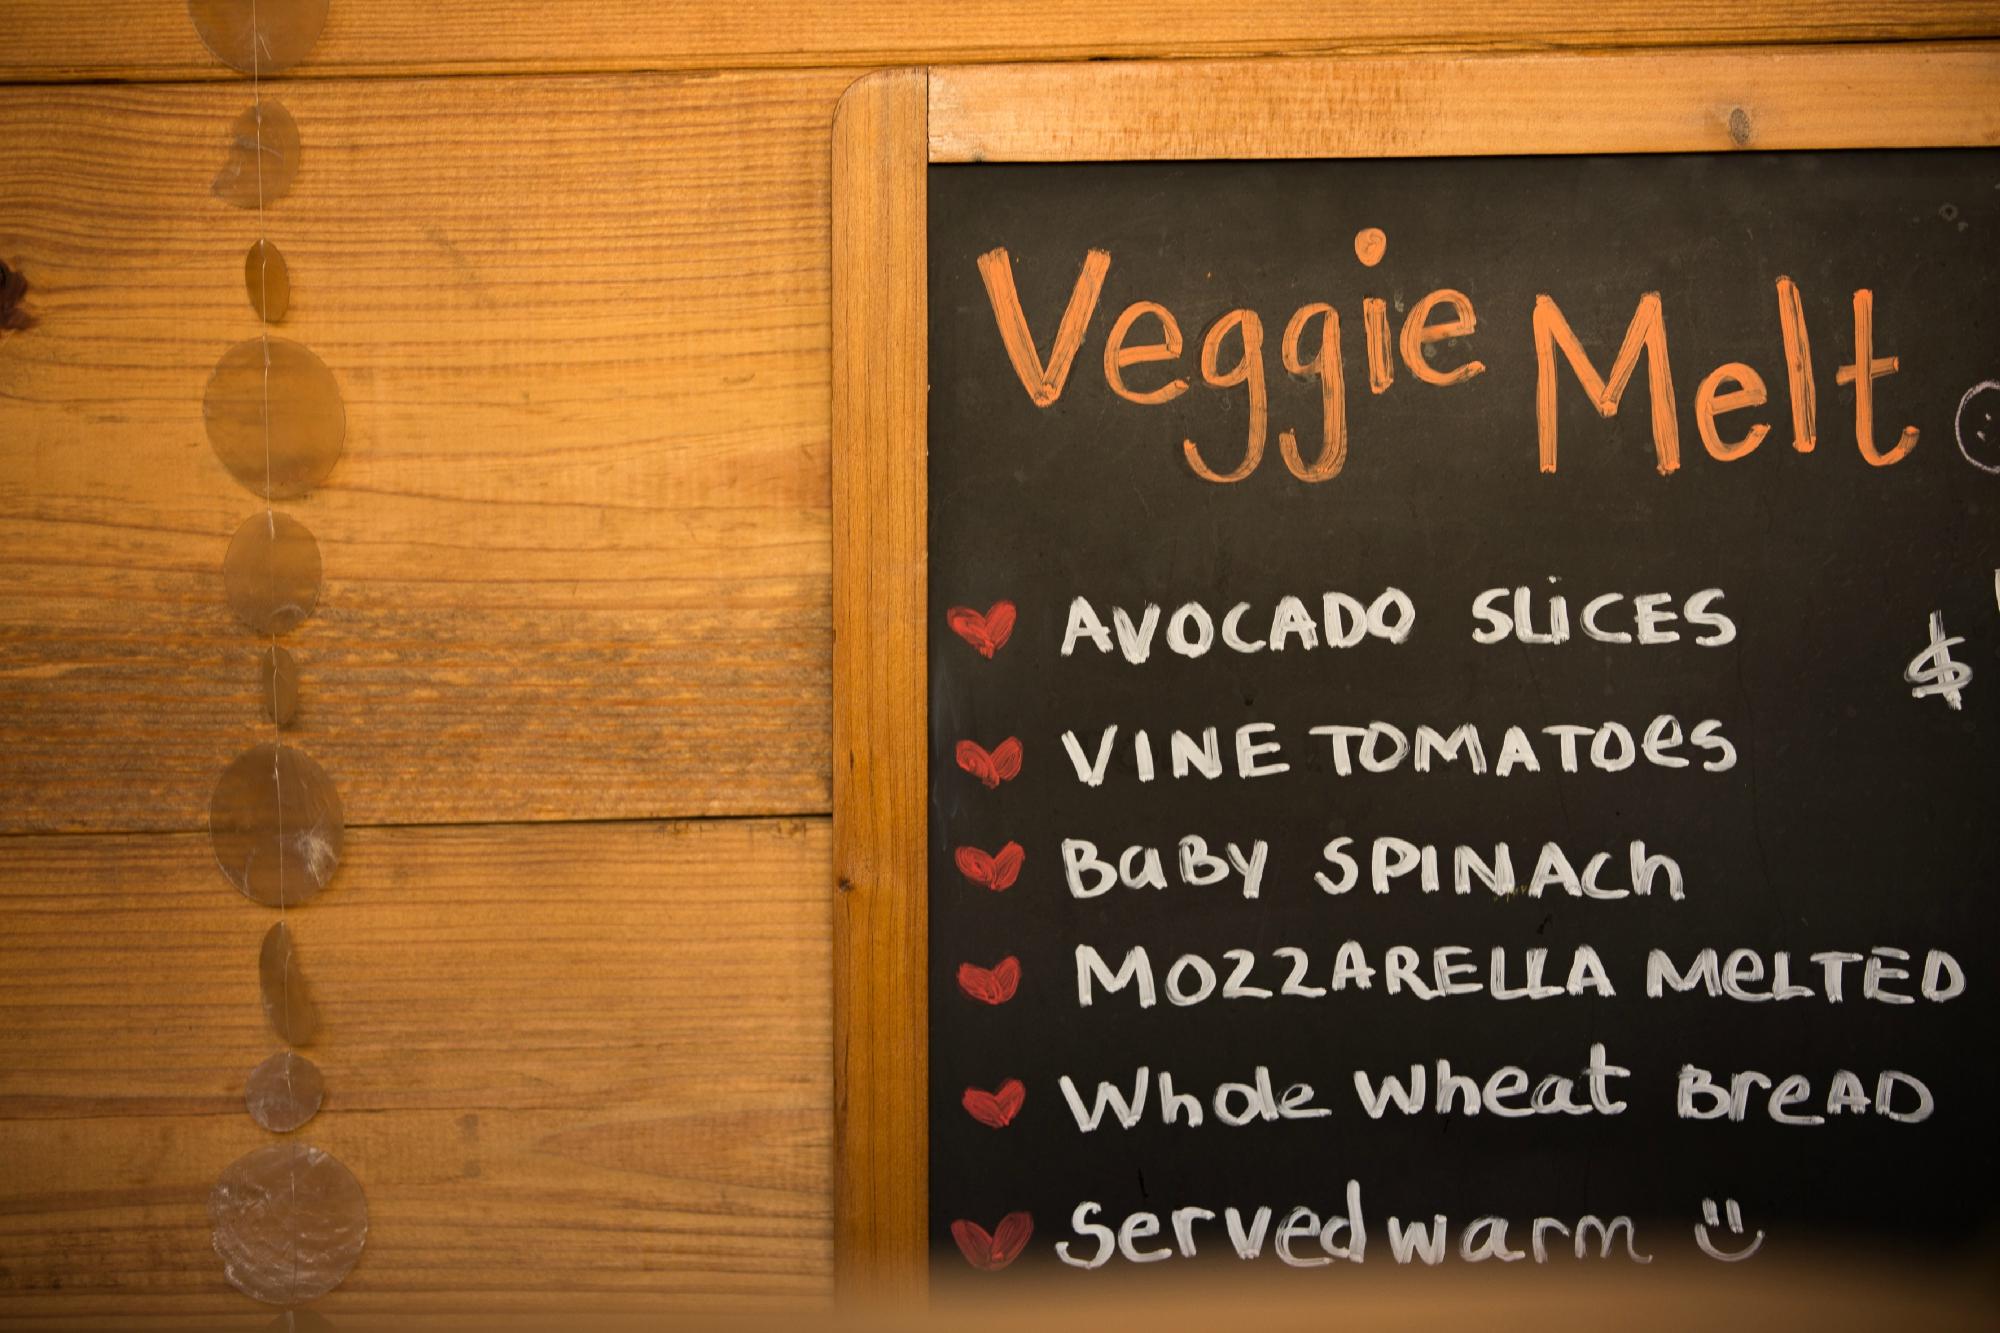 Veggie Melt
AVOCADO SLICES
$
VINE TOMATOes
BaBy SPINACh
MOZZARELLA MeLTED
Whole wheat BreAD
Served warm